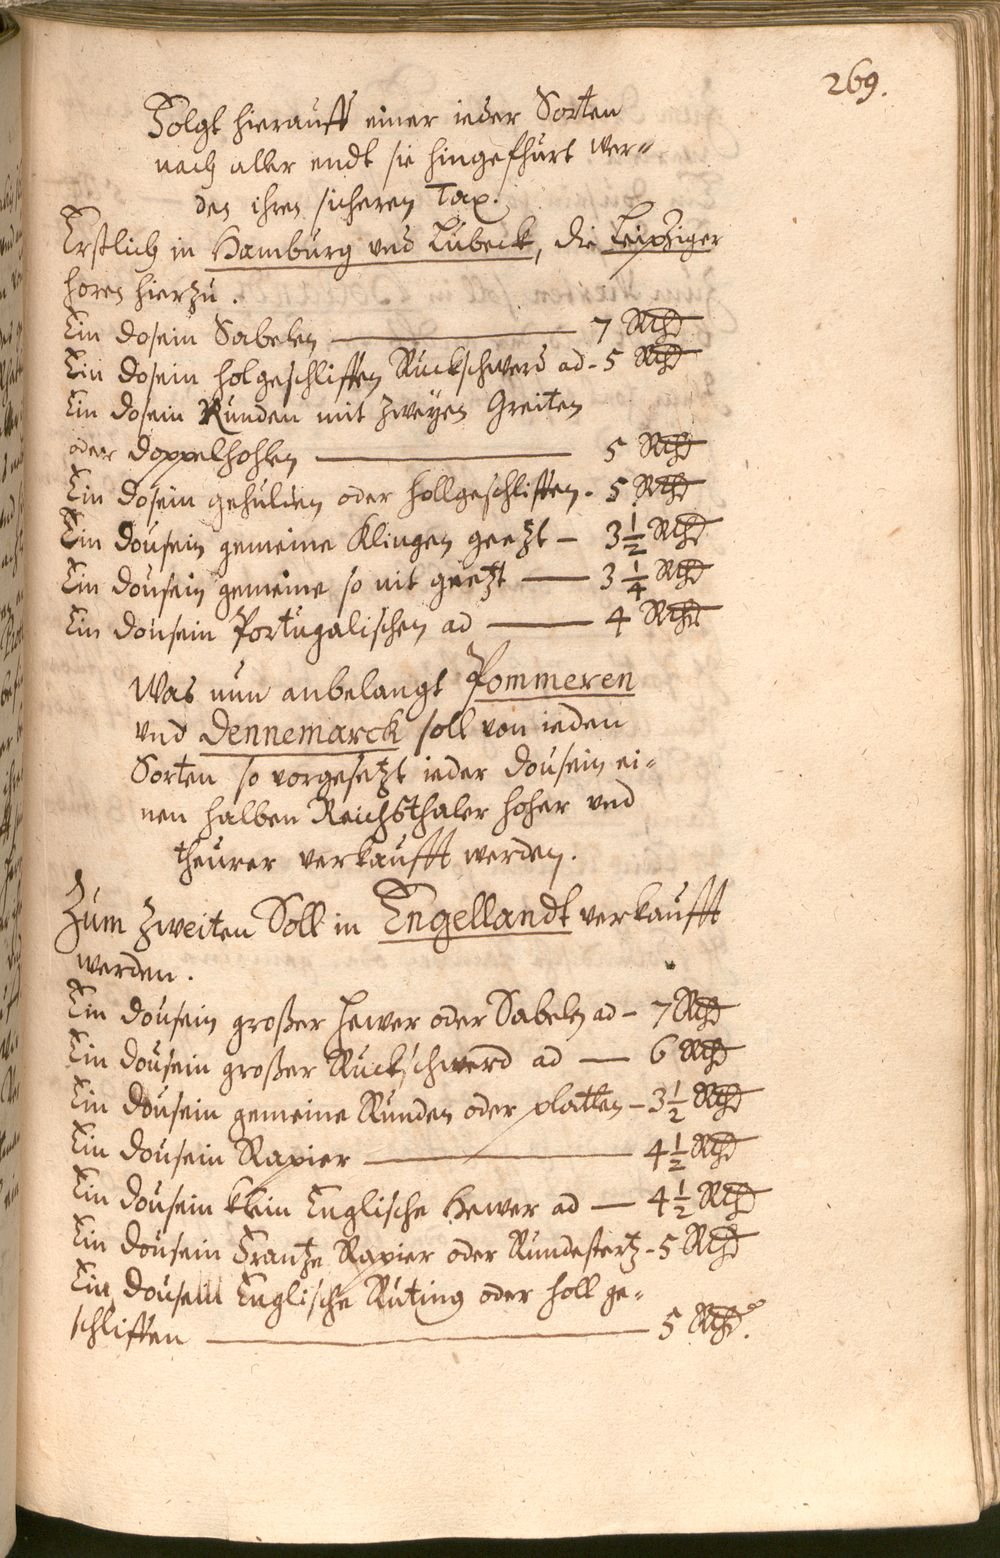 269.
Folgt hierauff einer ieder Sorten
nach aller endt sie hingefhürt wer=
den ihren sicheren Tax.
Erstlich in Hamburg und Lübeck, die Leipziger
horen hierzu.
Ein dosein Sabelen — 7 Rthd
Ein dosein holgeschliffen Rückschwerd ad - 5 Rthd
Ein dosein Runden mit zweyen Greiten
oder doppelhohlen — 5 Rthd
Ein dosein gehulden oder hollgeschliffen - 5 Rthd
Ein dousein gemeine Klingen geetzt — 3 1/2 Rthd
Ein dousein gemeine so nit geetzt — 3 1/4 Rthd
Ein dousein Portugalischen ad — 4 Rthd
Was nun anbelangt Pommeren
und Dennemarck soll von ieden
Sorten so vorgesetzt ieder dousein ei=
nen halben Reichsthaler hoher und
theurer verkaufft werden.
Zum Zweiten Soll in Engellandt verkaufft
werden.
Ein dousein großer Hewer oder Sabelen ad — 7 Rthd
Ein dousein großer Ruckschwerd ad — 6 Rthd
Ein dousein gemeine Runden oder platten — 3 1/2 Rthd
Ein dousein Rapier — 4 1/2 Rthd
Ein dousein klein Englische Hewer ad — 4 1/2 Rthd
Ein dousein Frantze Rapier oder Rundestertz - 5 Rthd
Ein dousein Englische Ruting oder holl ge=
schliffen — 5 Rthd.